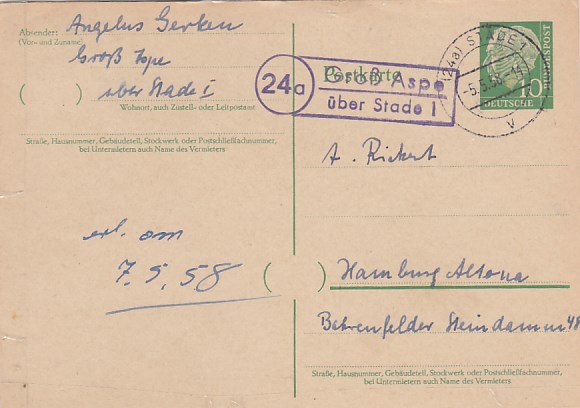 Absender: Angelus Gerken
(Vor- und Zuname)
Groß Aspe
( ) über Stade I
Wohnort, auch Zustell- oder Leitpostamt
Straße, Hausnummer, Gebäudeteil, Stockwerk oder Postschließfachnummer,
bei Untermietern auch Name des Vermieters
erl. am
7.5.58
Postkarte
24a
Groß Aspe
über Stade I
(24a) STADE 1
-5.5.58
V
10
DEUTSCHE
BUNDESPOST
A. Rickert
( ) Hamburg Altona
Bahrenfelder Steindamm 48
Straße, Hausnummer, Gebäudeteil, Stockwerk oder Postschließfachnummer,
bei Untermietern auch Name des Vermieters